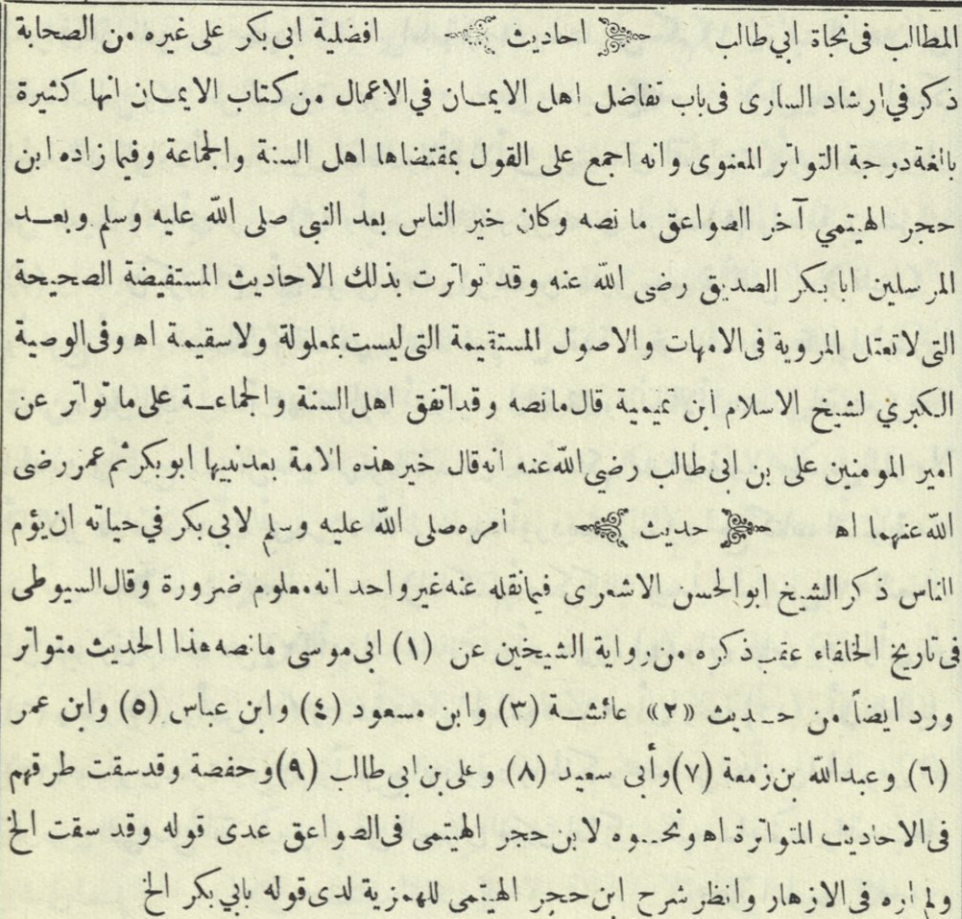 المطالب فى نجاة ابي طالب ﴿ احاديث ﴾ افضلية ابى بكر على غيره من الصحابة
ذكر في ارشاد السارى فى باب تفاضل اهل الايمان في الاعمال من كتاب الايمان انها كثيرة
بالغة درجة التواتر المعنوى وانه اجمع على القول بمقتضاها اهل السنة والجماعة وفيما زاده ابن
حجر الهيتمي آخر الصواعق ما نصه وكان خير الناس بعد النبى صلى الله عليه وسلم وبعد
المرسلين ابا بكر الصديق رضى الله عنه وقد تواترت بذلك الاحاديث المستفيضة الصحيحة
التى لا تعتل المروية فى الامهات والاصول المستقيمة التى ليست بمعلولة ولا سقيمة اه وفى الوصية
الكبري لشيخ الاسلام ابن تيمية قال ما نصه وقد اتفق اهل السنة والجماعة على ما تواتر عن
امير المومنين على بن ابى طالب رضي الله عنه انه قال خير هذه الامة بعد نبيها ابو بكر ثم عمر رضى
الله عنهما اه ﴿ حديث ﴾ امره صلى الله عليه وسلم لابى بكر في حياته ان يؤم
الناس ذكر الشيخ ابو الحسن الاشعرى فيما نقله عنه غير واحد انه معلوم ضرورة وقال السيوطى
فى تاريخ الخلفاء عقب ذكره من رواية الشيخين عن (١) ابى موسى ما نصه هذا الحديث متواتر
ورد ايضاً من حديث «٢» عائشة (٣) وابن مسعود (٤) وابن عباس (٥) وابن عمر
(٦) وعبدالله بن زمعة (٧) وأبى سعيد (٨) وعلى بن ابى طالب (٩) وحفصة وقد سقت طرقهم
فى الاحاديث المتواترة اه ونحوه لابن حجر الهيتمى فى الصواعق عدى قوله وقد سقت الخ
ولم اره فى الازهار وانظر شرح ابن حجر الهيتمى للهمزية لدى قوله بابي بكر الخ